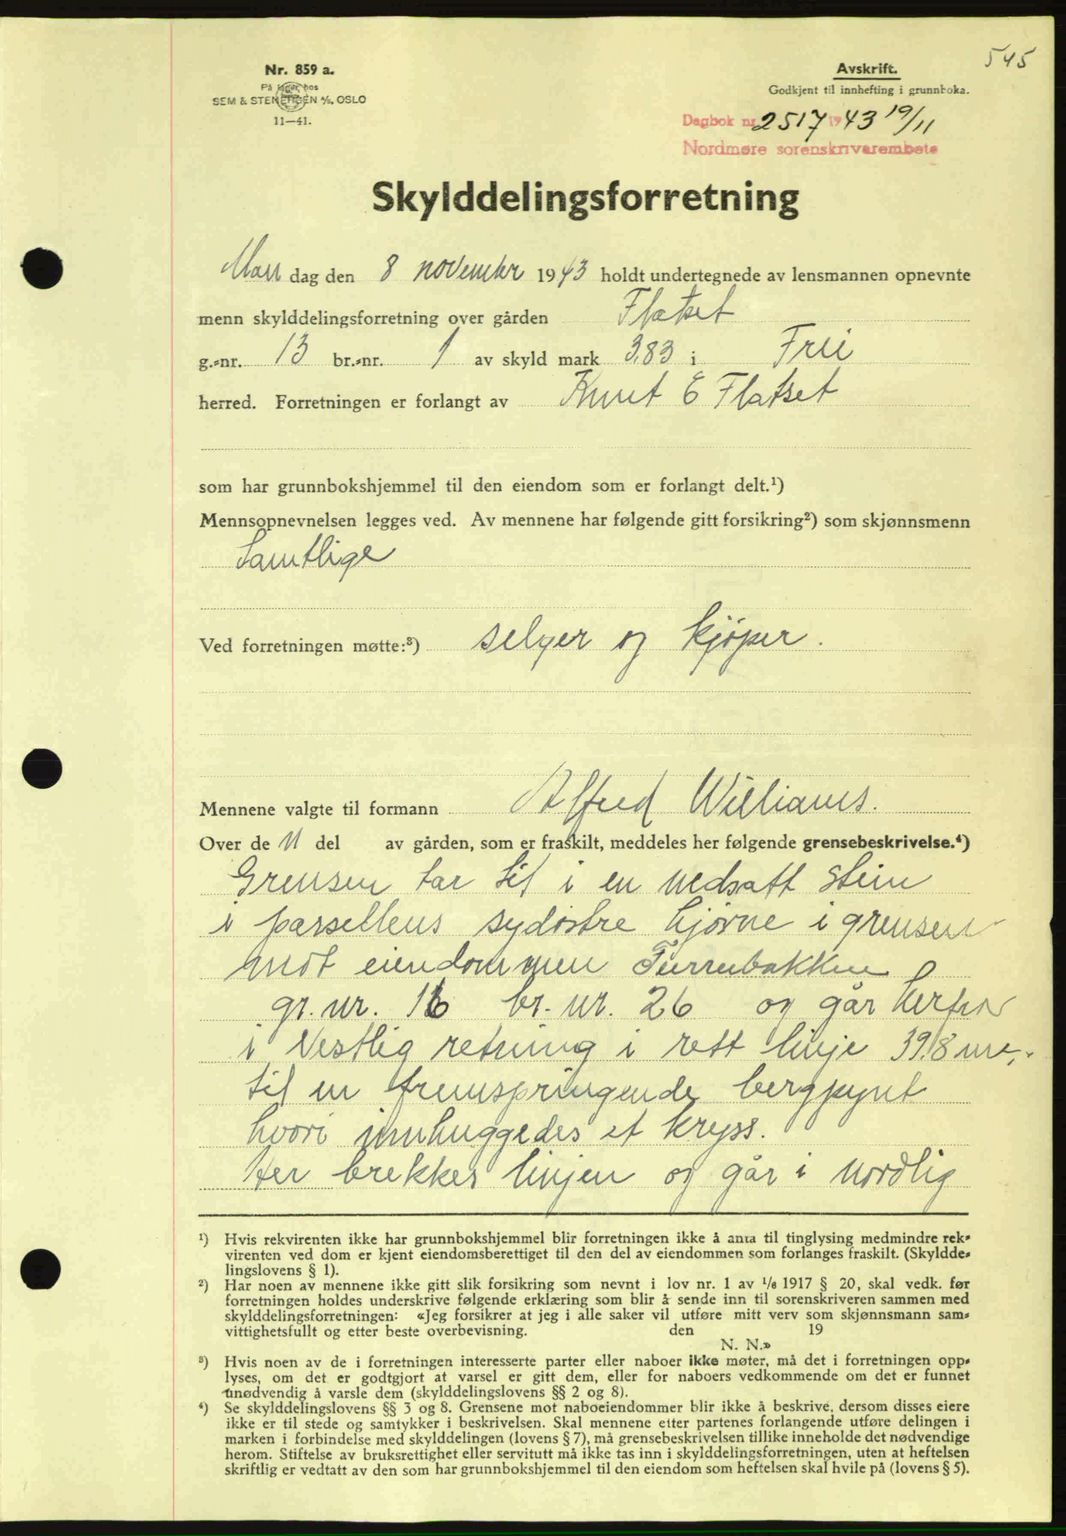 545
Nr. 859 a.
På lager hos
SEM & STENERSEN A/S, OSLO
11—41.
Avskrift.
Godkjent til innhefting i grunnboka.
Dagbok nr 2517 1943 19/11
Nordmøre sorenskriverembete
Skylddelingsforretning
Man dag den 8 november 1943 holdt undertegnede av lensmannen opnevnte
menn skylddelingsforretning over gården Flatset
g.-nr. 13 br.-nr. 1 av skyld mark 3,83 i Frei
herred. Forretningen er forlangt av Knut E Flatset
som har grunnbokshjemmel til den eiendom som er forlangt delt.¹)
Mennsopnevnelsen legges ved. Av mennene har følgende gitt forsikring²) som skjønnsmenn
Samtlige
Ved forretningen møtte:³) selger og kjöper.
Mennene valgte til formann Alfred Williams.
Over de n del av gården, som er fraskilt, meddeles her følgende grensebeskrivelse.⁴)
Grensen tar til i en nedsatt stein
i parsellens sydöstre hjörne i grensen
mot eiendommen Furubakken
gr. nr. 16 br. nr. 26 og går herfra
i Vestlig retning i rett linje 39.8 m
til en fremspringende bergpynt
hvori innhuggedes et kryss.
Her brekker linjen og går i nordlig
¹) Hvis rekvirenten ikke har grunnbokshjemmel blir forretningen ikke å anta til tinglysing medmindre rek-
virenten ved dom er kjent eiendomsberettiget til den del av eiendommen som forlanges fraskilt. (Skyldde-
lingslovens § 1).
²) Har noen av mennene ikke gitt slik forsikring som nevnt i lov nr. 1 av 1/6 1917 § 20, skal vedk. før
forretningen holdes underskrive følgende erklæring som blir å sende inn til sorenskriveren sammen med
skylddelingsforretningen: «Jeg forsikrer at jeg i alle saker vil utføre mitt verv som skjønnsmann sam-
vittighetsfullt og etter beste overbevisning. den 19
N. N.»
³) Hvis noen av de i forretningen interesserte parter eller naboer ikke møter, må det i forretningen opp-
lyses, om det er godtgjort at varsel er gitt dem, eller for naboers vedkommende om det er funnet
unødvendig å varsle dem (skylddelingslovens §§ 2 og 8).
⁴) Se skylddelingslovens §§ 3 og 8. Grensene mot naboeiendommer blir ikke å beskrive, dersom disses eiere
ikke er til stede og samtykker i beskrivelsen. Skal mennene etter partenes forlangende utføre delingen i
marken i forbindelse med skylddelingen (lovens § 7), må grensebeskrivelsen tillike inneholde det nødvendige
herom. Stiftelse av bruksrettighet eller servitutt må ikke tas inn i skylddelingsforretningen, uten at heftelsen
skriftlig er vedtatt av den som har grunnbokshjemmel til den eiendom som heftelsen skal hvile på (lovens § 5).